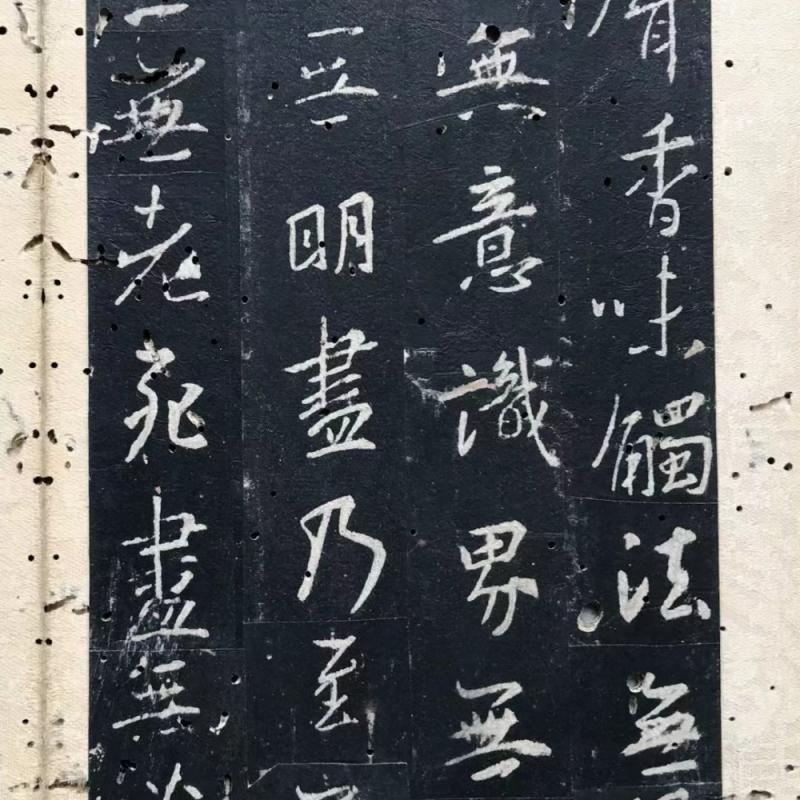 香味觸法無
無意識界無
無明盡乃至
無老死盡無